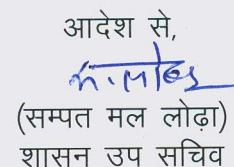 आदेश से,
(सम्पत मल लोढ़ा)
शासन उप सचिव